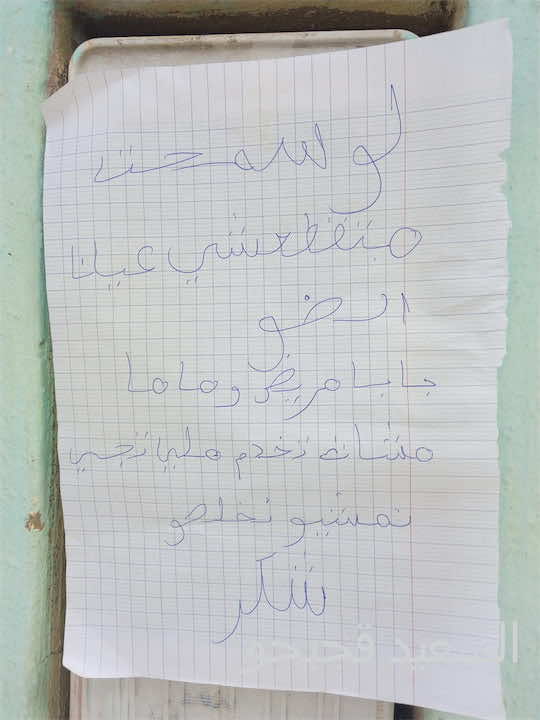 لو سمحت
متقطعشي عيلنا
الضو
بابا مريض وماما
مشات تخدم ملي تجي
نمشيو نخلصو
شكر
السعيد قدحدو